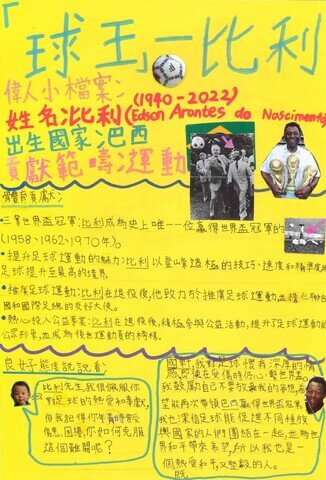 「球王」—比利
偉人小檔案：
(1940-2022)
姓名：比利(Edson Arantes do Nascimento)
出生國家：巴西
貢獻範疇：運動
體育貢獻：
•三奪世界盃冠軍：比利成為史上唯一一位贏得世界盃冠軍的
(1958、1962、1970年)。
•提升足球運動的魅力：比利以登峰造極的技巧、速度和精準度
足球提升至最高的境界。
•推廣足球運動：比利在退役後，他致力於推廣足球運動並擔任聯合
國和國際足總的友好大使。
•熱心投入公益事業：比利在退役後，積極參與公益活動，提升了足球運動的
公眾形象，並成為後世運動員的榜樣。
良好態度說說看：
比利先生，我很佩服你
對足球的熱愛和專獻，
但我記得你年青時曾受
傷患困擾，你如何克服
這個難關呢？
因為我對足球懷有深厚的情
我鼓勵自己不要放棄我的夢想，希
望能再次帶領巴西贏得世界盃冠軍
我也深信足球能促進不同種族
與國家的人們團結在一起，並為世
界和平帶來希望，所以我也是一
個熱愛和平又堅毅的人。
既